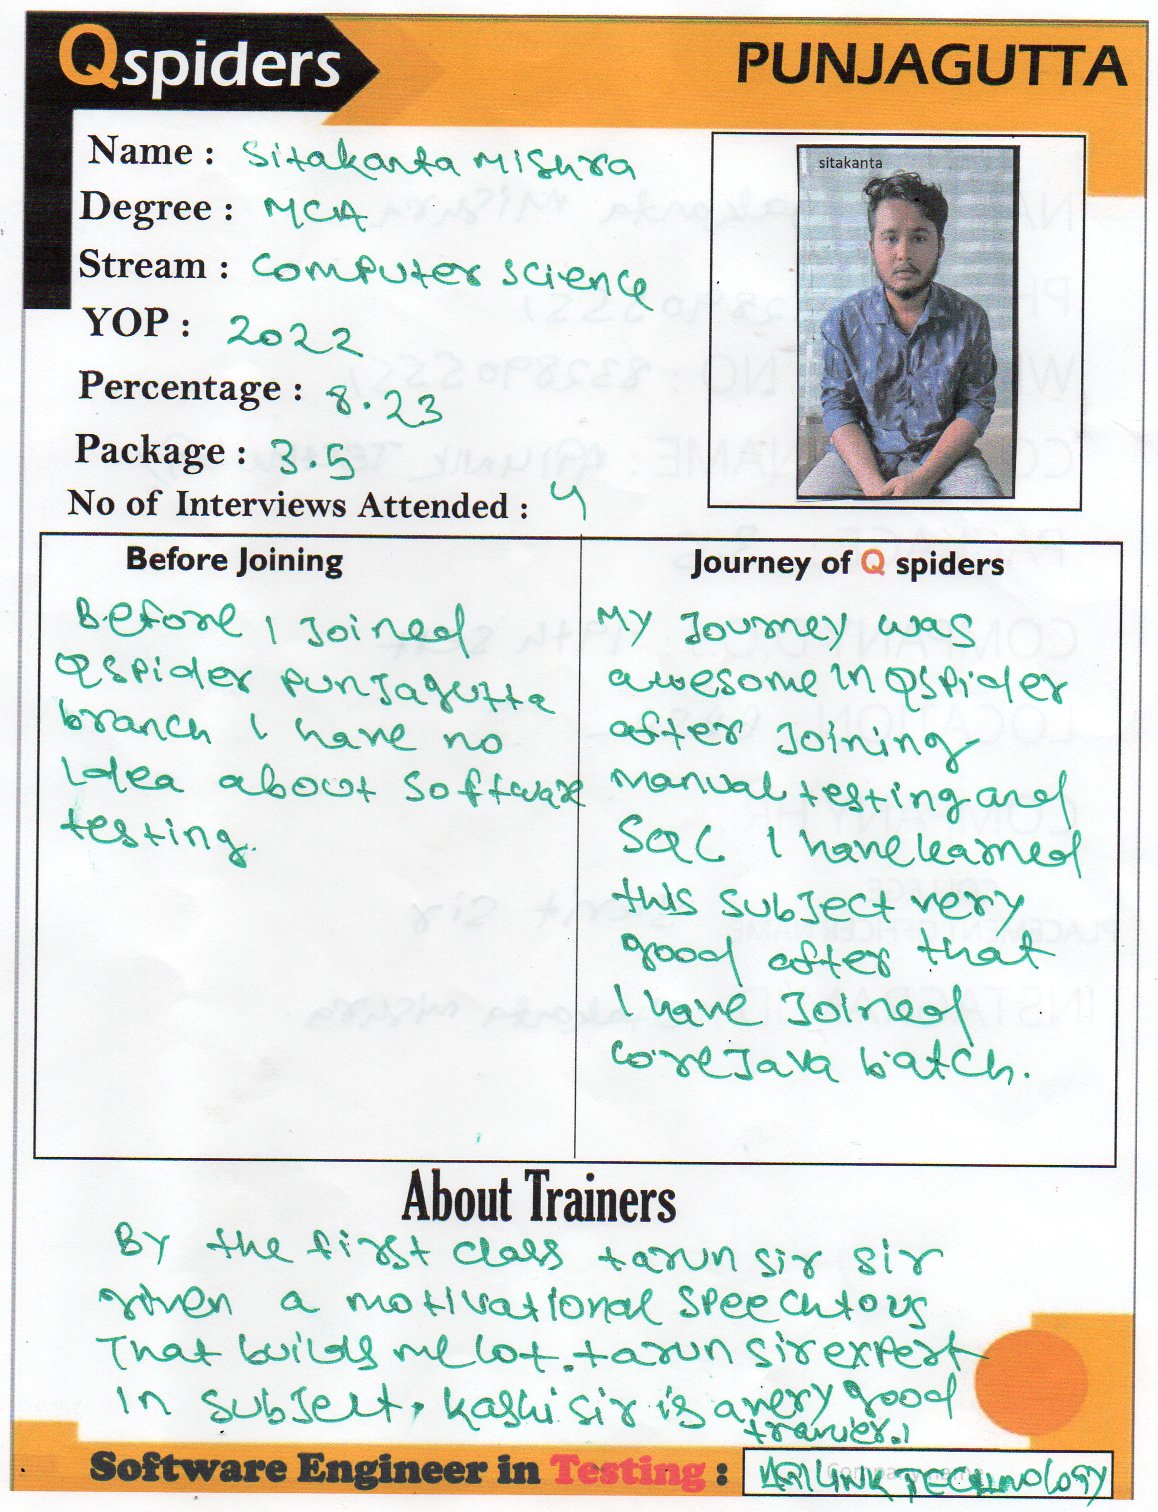 Qspiders
PUNJAGUTTA
Name : Sitakanta Misura
Degree : MCA
Stream : Computer Science
YOP : 2022
Percentage : 8.23
Package : 3.5
No of Interviews Attended : 4
sitakanta
Before Joining
Before I Joined
Qspider punjagutta
branch I have no
Idea about Software
testing.
Journey of Q spiders
My Journey was
awesome in Qspider
after Joining
manual testing and
SQL I have learned
this subject very
good after that
I have Joined
core Java batch.
About Trainers
By the first class tarun sir sir
given a motivational speech to us
That builds me lot. tarun sir expert
In subject, Kashi sir is a very good
tranier.
Software Engineer in Testing : TECHNOLOGY